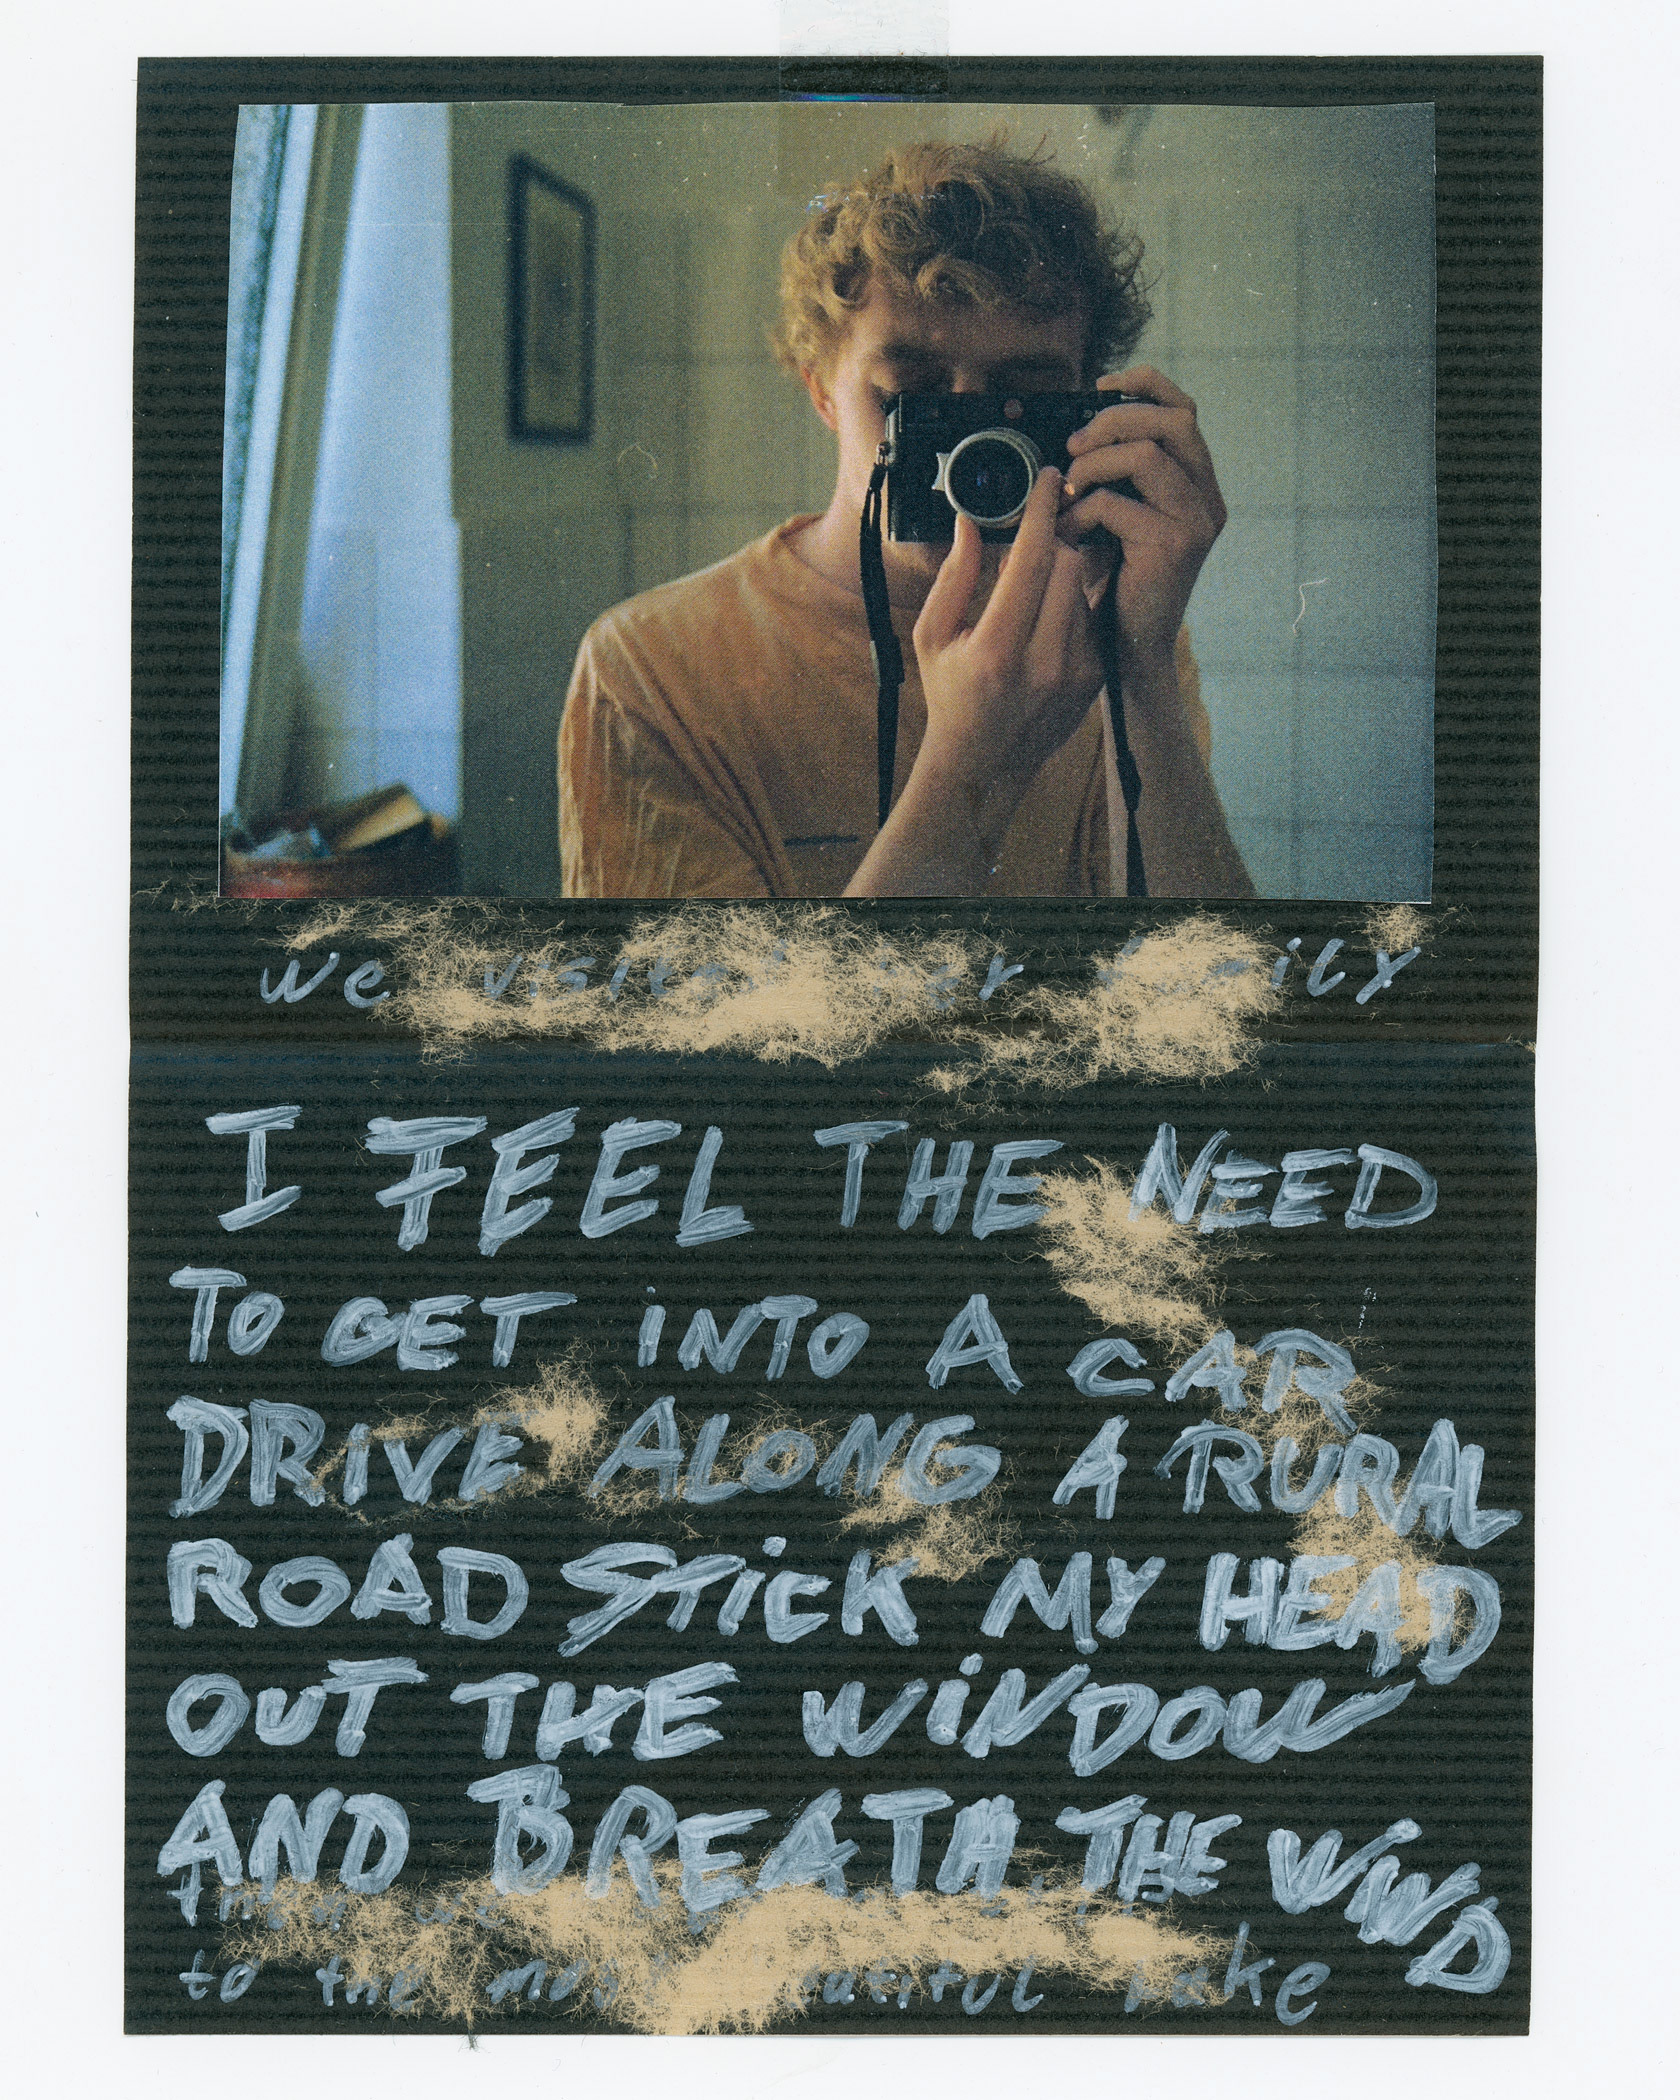 we visited her family
I FEEL THE NEED
TO GET iNTO A CAR
DRiVE ALONG A RURAL
ROAD STicK MY HEAD
OUT THE WiNDOW
AND BREATH THE WIND
to the most beautiful Lake